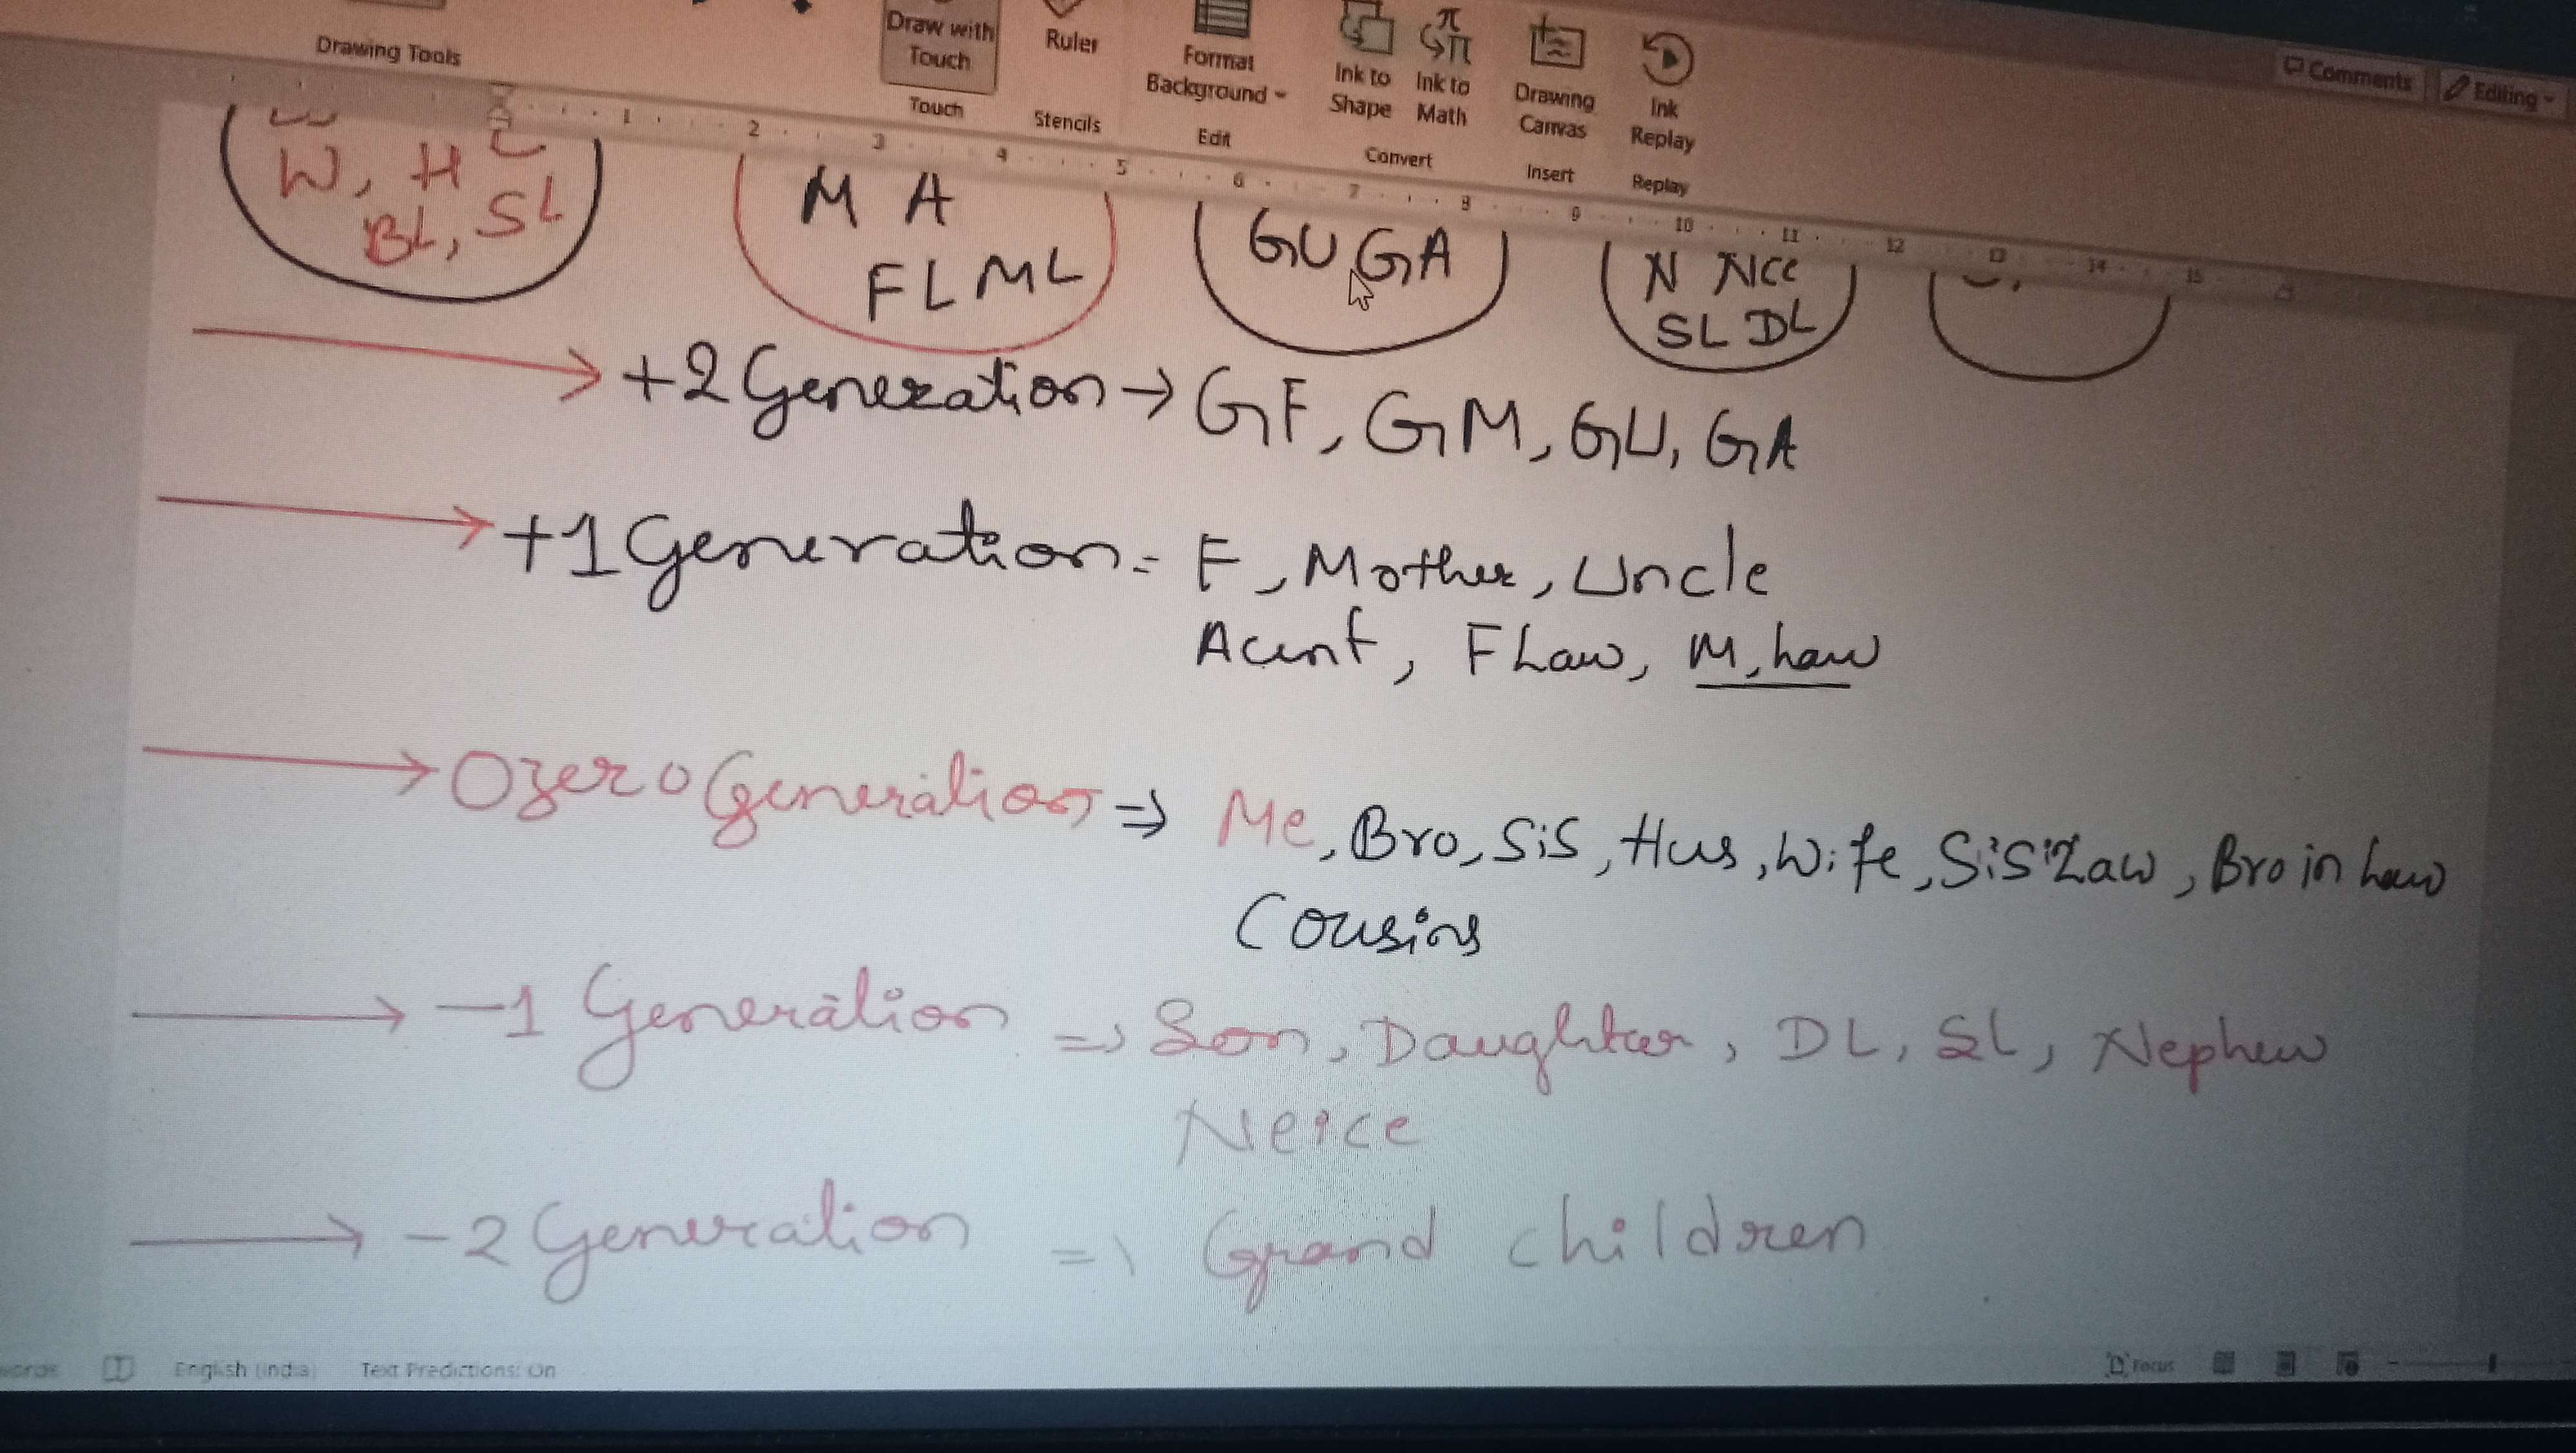 Drawing Tools
Draw with Touch
Touch
Ruler
Stencils
Format Background
Edit
Ink to Shape
Ink to Math
Convert
Drawing Canvas
Insert
Ink Replay
Replay
Comments
Editing
1 2 3 4 5 6 7 8 9 10 11 12 13 14 15
W, H C
BL, SL
M A
FL ML
GU GA
N Nice
SL DL
+2 Generation → GF, GM, GU, GA
+1 Generation = F, Mother, Uncle
Acunt, F Law, M, Law
0 zero Generation ⇒ Me, Bro, Sis, Hus, Wife, Sis in Law, Bro in Law
Cousins
-1 Generation ⇒ Son, Daughter, DL, SL, Nephew
Neice
-2 Generation ⇒ Grand children
English (India)
Text Predictions: On
Focus